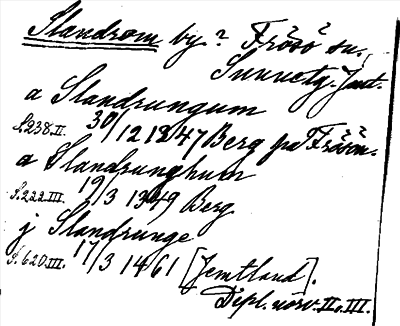 Slandrom by? Frösö sn.
Sunne tg. Jmt.
a Slandrungum
S. 238. II. 30/12 1347 Berg på Frösön.
a Slandrunghum
S. 222. III. 19/3 1349 Berg
j Slandrunge
S. 620. III. 17/3 1461 [Jemtland].
Dipl. norv. II. III.